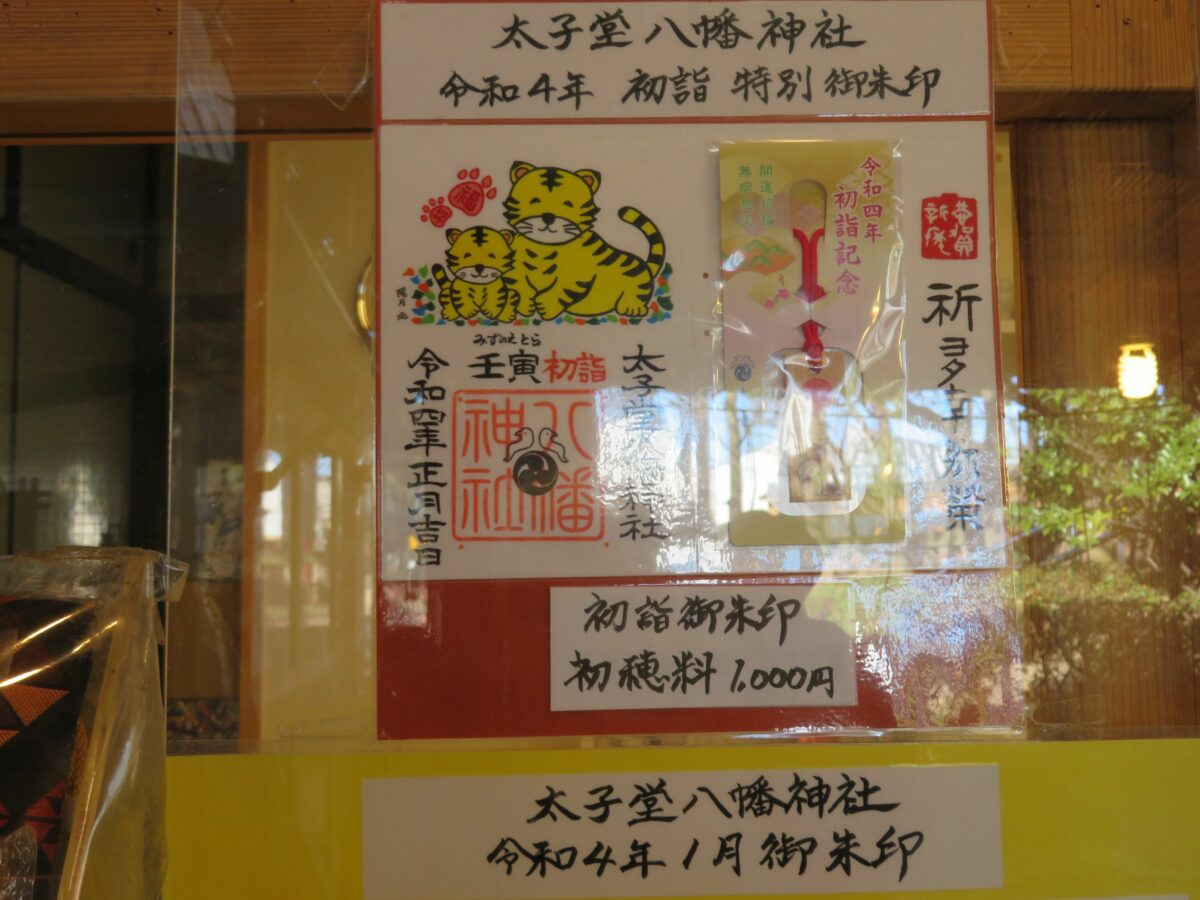 太子堂八幡神社
令和4年 初詣 特別御朱印
福
陽月画
みずのえとら
壬寅 初詣
太子堂八幡神社
八幡
神社
令和四年 正月吉日
令和四年
初詣記念
開運招福
無病息災
恭賀
新年
初詣御朱印
初穂料 1,000円
太子堂八幡神社
令和4年 1月 御朱印